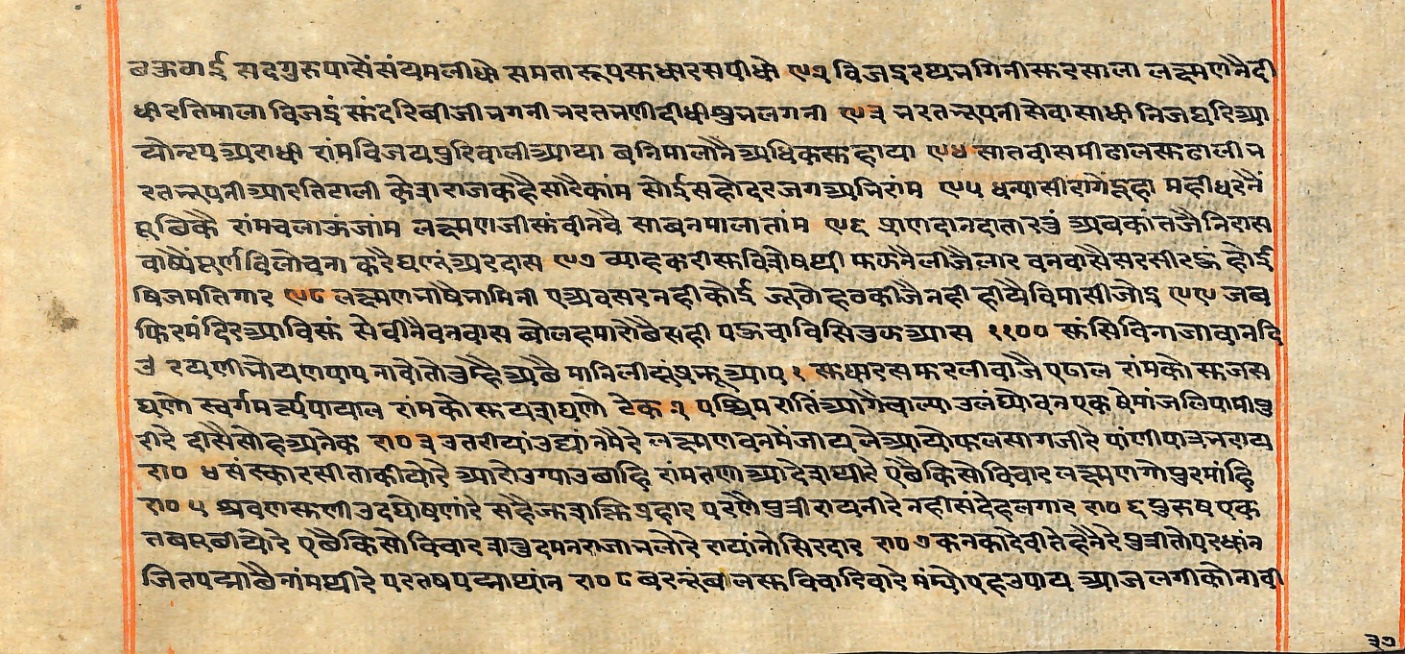 बऊगई सदगुरुपासेंसंयमलीधो समतारूपसुधारसपीधो ९२ विजइरथभगिनीसुरसाला लक्ष्मणनैदी
धीरतिमाला विजइंसुंदरिबीजीभगनी भरतभणीदीधीशुभलगनी ९३ भरतनृपनीसेवासाधी निजघरिआ
योनृपअराधी रांमविजयपुरिचालीआया बनिमालानैअधिकसुहाया ९४ सातवीसमीढालसुढाली भ
रतनृपनीआरतिटाली केशराजकहैसारैकांम सोईसहोदरजगअभिरांम ९५ धन्यासीरागेंदूहा महीधरनें
पूछिकै रांमचलाऊजांम लक्ष्मणजीसुंवीनवै साबनमालातांम ९६ प्राणदानदातारतुं अबकांतजैनिरास
वाष्पेंपूर्णविलोचना करैघणूंअरदास ९७ व्याहकरीसुविशेषथी मुझनैलीजैलार वनवासैसरसीरहुं होई
षिजमतिगार ९८ लक्ष्मणभाषैभामिनी एअवसरनहीकोई जागेहठकीजैनही हीयैविमासीजोइ ९९ जब
फिरमंदिरआविसुं सेवीनैवनवास बोलहमारोछैसही पऊचाविसितुझआस ११०० सुंसिविनाजावानदि
उं रयणीभोयणपाप नावेतोतुम्हैअछै मानिलीह्यु आप १ सुधारसमुरलीवाजै एढाल रांमकोसुजस
घणो स्वर्गमर्त्यपायाल रांमकोसुयशघणो टेक २ पश्चिमरातिंआगेचाल्या उलंघ्योवनएक षेमांजलिपामीपु
रीरे दीसैसोहअनेक रा० ३ उतरीयांउद्यांनमैरे लक्ष्मणवनमेंजाय लेआयोफलसागजीरे पांणीपात्रभराय
रा० ४ संस्कारसीताकीयोरे आरोग्याउछांहि रांमतणाआदेशथीरे एछैकिसोविचार लक्ष्मणगोपुरमांहि
रा० ५ श्रवणसुणीउदघोषणारे सहैजशक्तिप्रहार परणैपुत्रीरायनीरे नहीसंदेहलगार रा० ६ पुरुषएक
तबपूछीयोरे एछैकिसोविचार शत्रुदमनराजाभलोरे रायांनोसिरदार रा० ७ कनकादेवीतेहनैरे पुत्रीतोपरधांन
जितपद्माछैनांमथीरे परतषपद्माथांन रा० ८ बरनूंबालसुविचादिवारे मंम्योएहउपाय आजलगीकोनावी
३७